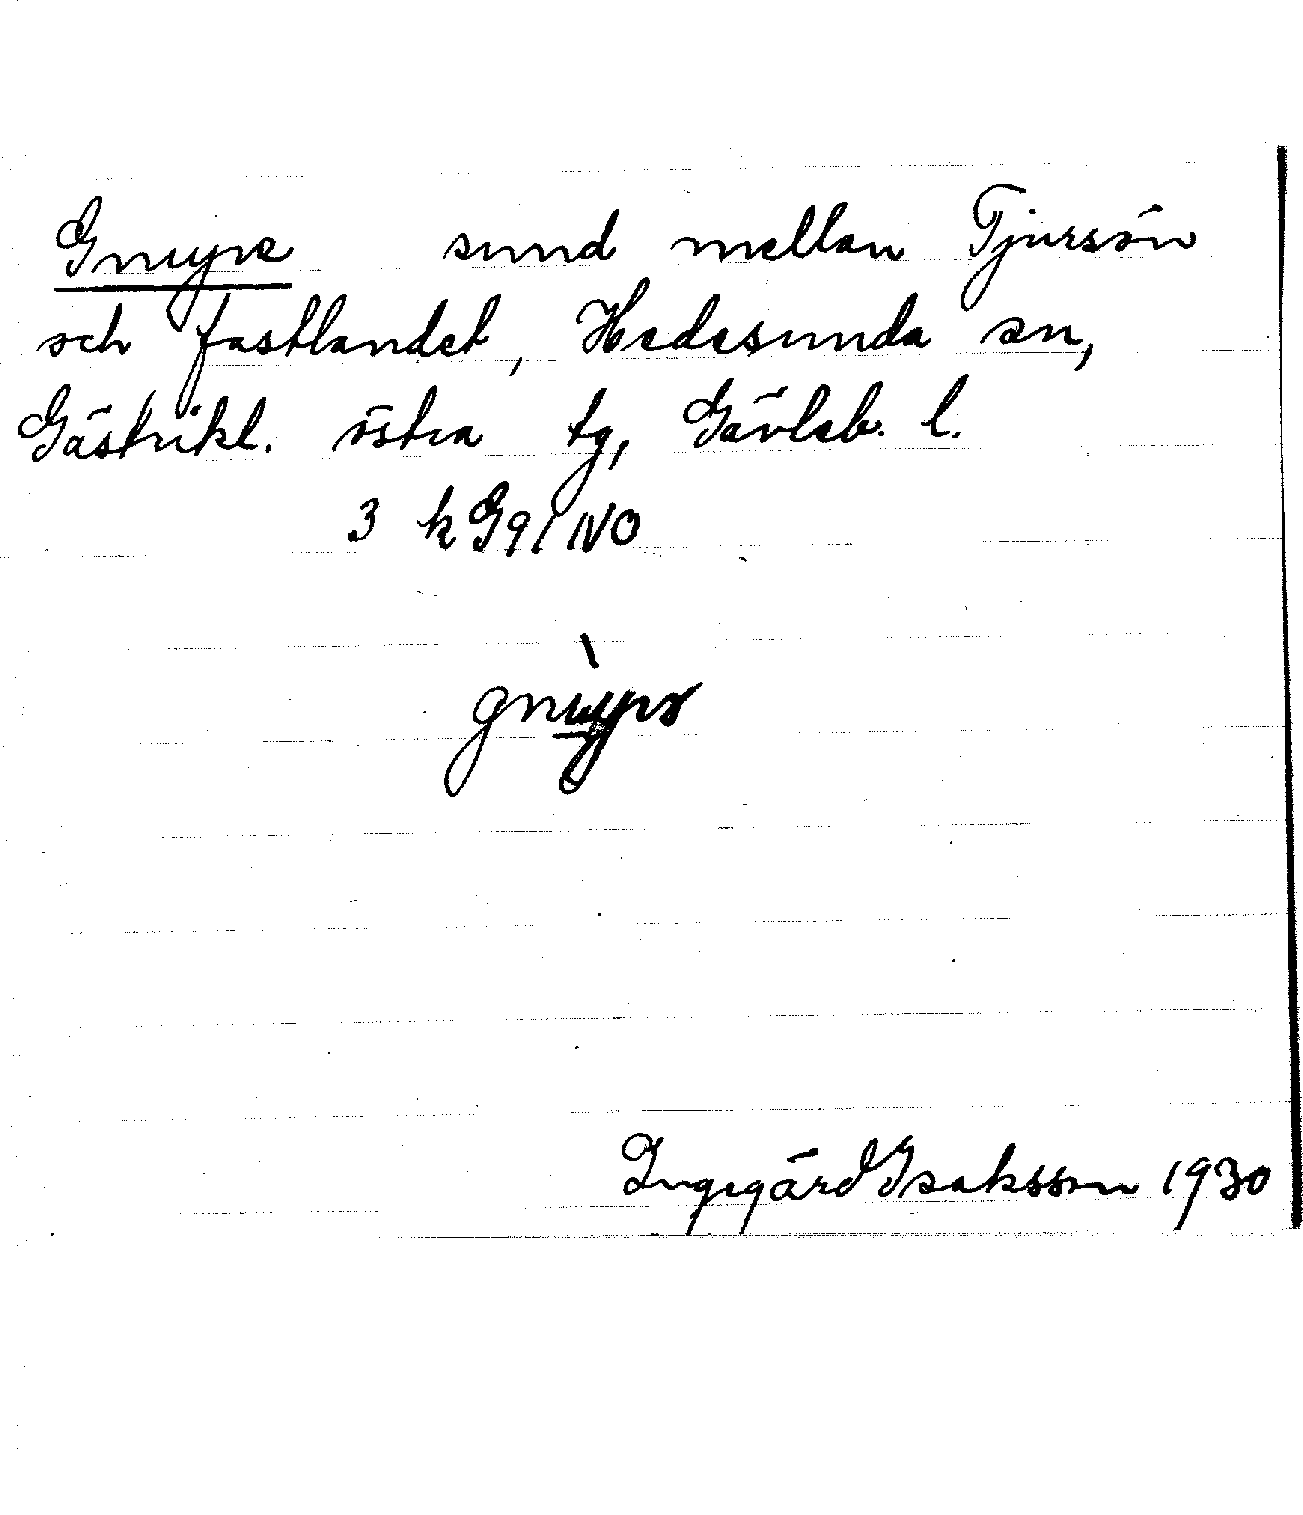 Gnupe sund mellan Tjursön
och fastlandet, Hedesunda sn,
Gästrikl. östra tg, Gävleb. l.
3 k G91 NO
Ingegärd Isaksson 1930